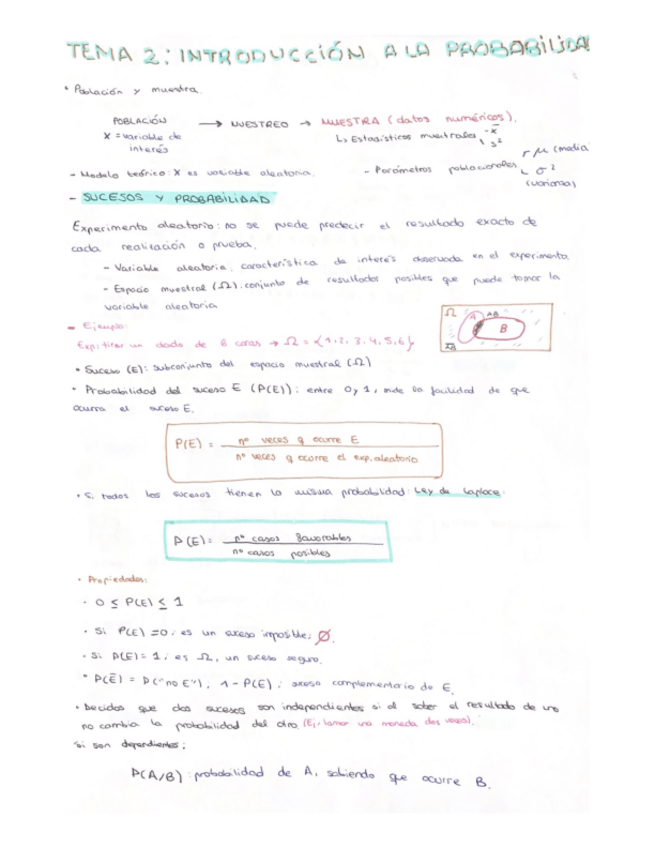 TEMA 2: INTRODUCCIÓN A LA PROBABILIDA
• Población y muestra.
POBLACIÓN → MUESTREO → MUESTRA (datos numéricos).
X = variable de interés
↳ Estadísticos muestrales x̄ s²
- Modelo teórico: X es variable aleatoria.
- Parámetros poblacionales μ (media σ² (varianza)
- SUCESOS Y PROBABILIDAD
Experimento aleatorio: no se puede predecir el resultado exacto de
cada realización o prueba.
- Variable aleatoria: característica de interés observada en el experimento.
- Espacio muestral (Ω): conjunto de resultados posibles que puede tomar la
variable aleatoria
- Ejemplo:
Exp: tirar un dado de 6 caras → Ω = {1, 2, 3, 4, 5, 6}
Ω A AB B
• Suceso (E): subconjunto del espacio muestral (Ω)
• Probabilidad del suceso E (P(E)): entre 0 y 1, mide la facilidad de que
ocurra el suceso E.
P(E) = nº veces q ocurre E
nº veces q ocorre el exp. aleatorio
• Si todos los sucesos tienen la misma probabilidad: Ley de Laplace:
P(E) = nº casos favorables
nº casos posibles
• Propiedades:
- 0 ≤ P(E) ≤ 1
• Si P(E) = 0: es un suceso imposible; Ø.
• Si P(E) = 1: es Ω, un suceso seguro.
• P(Ē) = P("no E"); 1 - P(E); suceso complementario de E.
• Decidos que dos sucesos son independientes si al saber el resultado de uno
no cambia la probabilidad del otro. (Ej: lanzar una moneda dos veces).
Si son dependientes:
P(A/B): probabilidad de A, sabiendo que ocurre B.